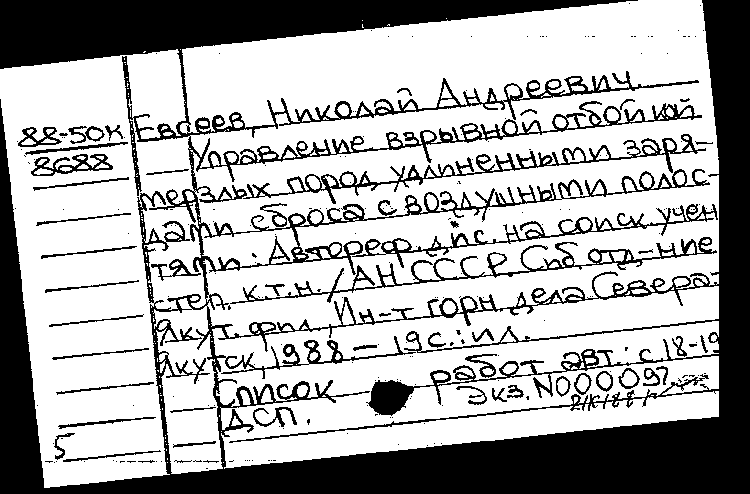 88-50к Евсеев, Николай Андреевич.
8688 Управление взрывной отбойкой
мерзлых пород удлиненными заря-
дами сброса с воздушными полос-
тями : Автореф. дис. на соиск. учен
степ. к.т.н. / АН СССР. Сиб. отд-ние
Якут. фил., Ин-т горн. дела Севера.
Якутск, 1988. — 19 с. : ил.
Список работ авт.: с. 18-19
ДСП. Экз. N000097
5